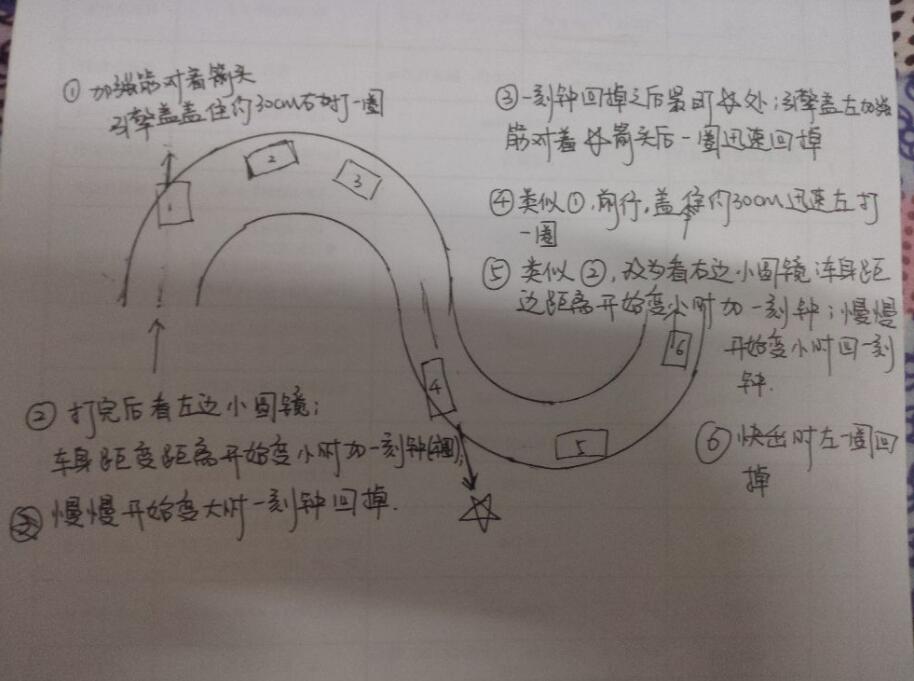 ① 加强筋对着箭头
引擎盖盖住约30cm右打一圈
③ 一刻钟回掉之后看
处;引擎盖左加强
筋对着箭头后一圈迅速回掉
④ 类似①,前行,盖住约30cm迅速左打
一圈
⑤ 类似②,改为看右边小圆镜;车身距
边距离开始变小时加一刻钟;慢慢
开始变小时回一刻
钟.
② 打完后看左边小圆镜;
车身距变距离开始变小时加一刻钟
慢慢开始变大时一刻钟回掉.
⑥ 快出时左一圈回
掉
1
2
3
4
5
6